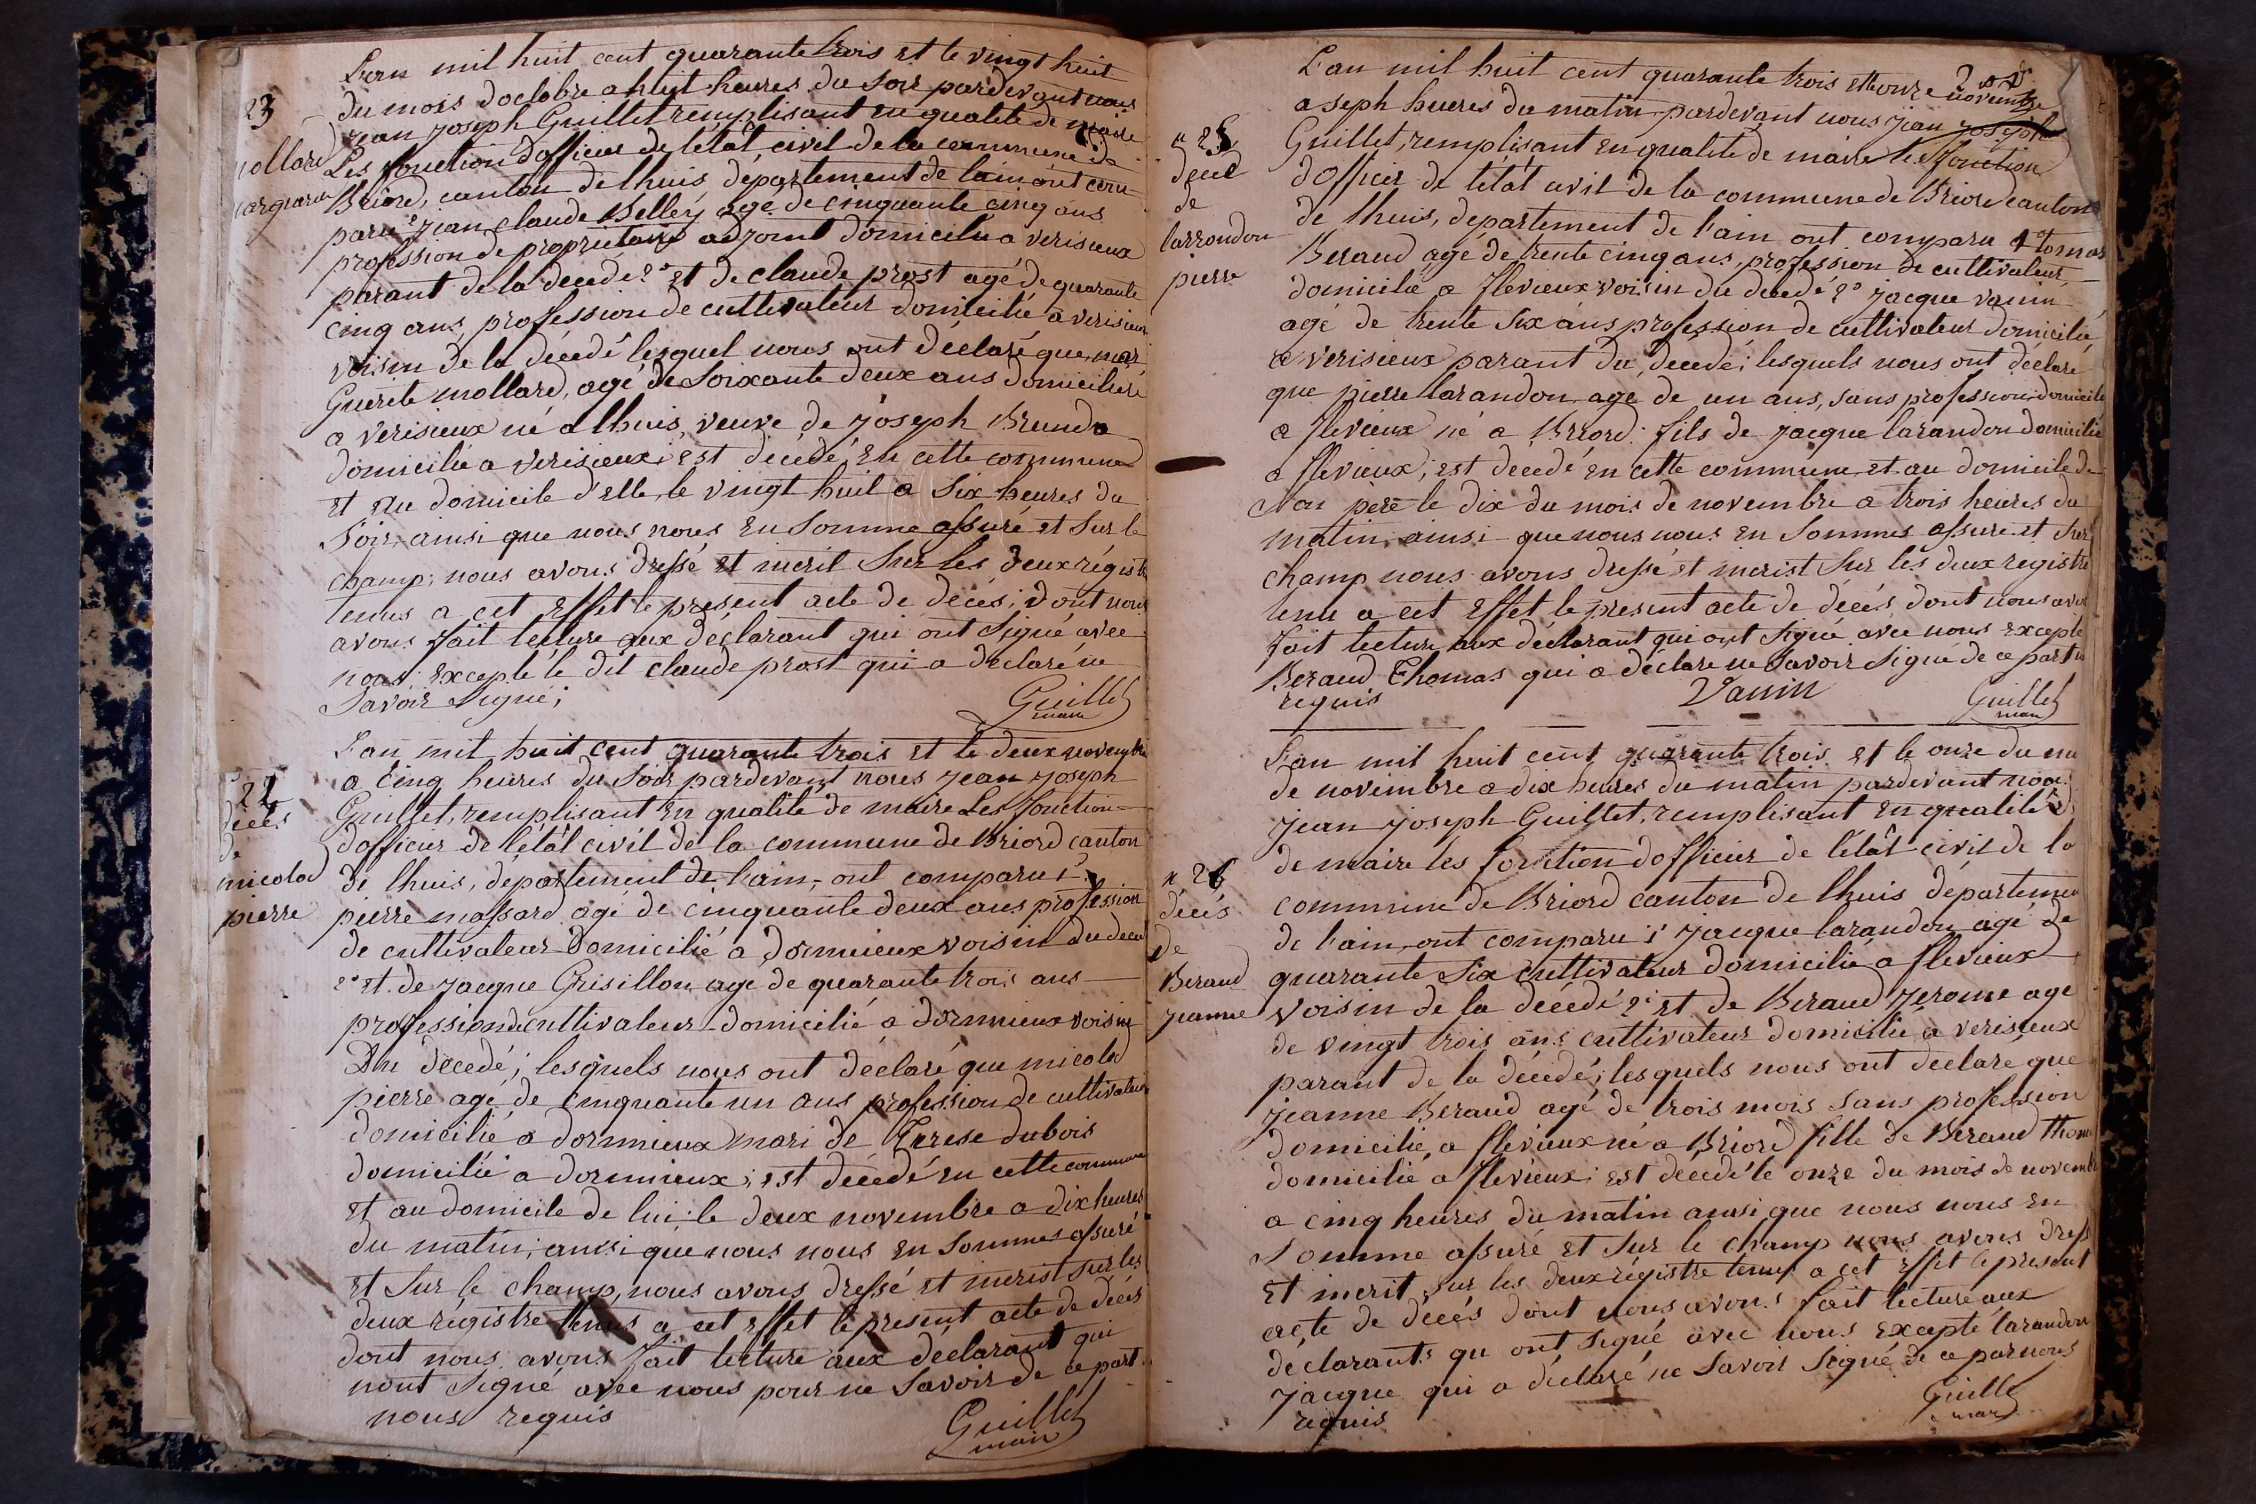 L'an mil huit cent quarante trois et le vingt huit
du mois doctobre a huit heures du soir pardevant nous
jean joseph Guillet remplisant en qualité de maire
Les fonction dofficier de létât civil de la commune de
Briord, canton de lhuis département de lain ont com-
paru 1° jean claude Belley agé de cinquante cinq ans
profession de propriétaire adjoint domicilié a verisieux
parant de la decedé 2° et de claude prost agé de quarante
cinq ans profession de cultivateur domicilié a verisieux
voisin de la décedé lesquel nous ont déclaré que mar
Guerite mollard, agé de soixante deux ans domiciliéé
a verisieux né a lhuis, veuve de joseph Brunda
domicilié a verisieux; est décedé, en cette commune
et au domicile d'elle, le vingt huit a six heures du
soir, ainsi que nous nous en somme assuré et sur le
champ; nous avons dressé et incrit sur les deux régistre
tenus a cet effet le présent acte de décés; dont nous
avons fait lecture aux déclarant qui ont signé avec
nous excepté le dit claude prost qui a déclaré ne
savoir signé;
Guillet
maire
23
mollard
marguerite
L'an mil huit cent quarante trois et le deux novembre
a cinq heures du soir pardevant nous jean joseph
Guillet, remplisant en qualité de maire Les fonction
dofficier de létât civil de la commune de Briord canton
de lhuis, département de l'ain, ont comparu 1°
pierre massard agé de cinquante deux ans profession
de cultivateur domicilié a dormieux voisin du decedé
2° et de jacque Grisillon age de quarante trois ans
profession de cultivateur domicilié a dormieux voisin
Du décedé; lesquels nous ont déclaré que micolod
pierre agé de cinquante un ans profession de cultivateur
domicilié a dormieux mari de Terese dubois
domicilié a dormieux; est décedé en cette commune
et au domicile de lui le deux novembre a dix heures
du matin; ainsi que nous nous en sommes assuré
et sur le champ, nous avons dressé et incrist sur les
deux régistre tenus a cet effet le present acte de décés
dont nous avons fait lecture aux déclarant qui
nont signé avec nous pour ne savoir de ce part
nous requis
Guillet
maire
décés
de
micolod
pierre
L'an mil huit cent quarante trois et le onze novembre
a seph hueres du matin pardevant nous jean joseph
Guillet, remplisant en qualité de maire les fonction
dofficier de létât civil de la commune de Briord canton
de lhuis, département de l'ain ont comparu 1° tomas
Beraud agé de trente cinq ans, profession de cultivateur
domicilié a flevieux voisin du decedé 2° jacque vanin
agé de trente six ans profession de cultivateur domicilié
a verisieux parant du décedé; lesquels nous ont déclaré
que pierre larandon agé de un ans, sans profession domicilié
a flévieux né a Briord. fils de jacque larandon domicilié
a flevieux; est decedé en cette commune et au domicile de
son pere le dix du mois de novembre a trois heures du
matin ainsi que nous nous en sommes assure et sur
champ nous avons dressé et incrist sur les deux registre
tenu a cet effet le present acte de décés dont nous avons
fait lecture aux déclarant qui ont signé avec nous excepté
Beraud Thomas qui a déclare ne savoir signé de ce part
requis
Vanin
Guillet
maire
n 25
de
larrondon
pierre
L'an mil huit cent quarante trois et le onze du
de novembre a dix heures du matin pardevant nous
jean joseph Guillet, remplisant en qualité
de maire les fonction dofficier de létât civil de la
commune de Briord canton de lhuis département
de l'ain, ont comparu 1° jacque larandon agé de
quarante six cultivateur domicilié a flevieux
voisin de la décedé 2° et de Beraud Jerome age
de vingt trois ans cultivateur domicilié a verisieux
parant de la décedé; lesquels nous ont declaré que
jeanne Beraud agé de trois mois sans profession
domicilié, a flévieux né a Briord fille de Beraud Thom
domicilié a flevieux; est decedé le onze du mois de novembre
a cinq heures du matin ainsi que nous nous en
somme assuré et sur le champ nous avons dressé
et incrit sur les deux régistre tenus a cet effet le present
acte de décés dont nous avons fait lecture aux
déclarants qu ont signé avec nous excepté larandon
jacque qui a déclaré ne savoir signé de ce par nous
requis
Guillet
maire
n 26
décés
de
Beraud
jeanne